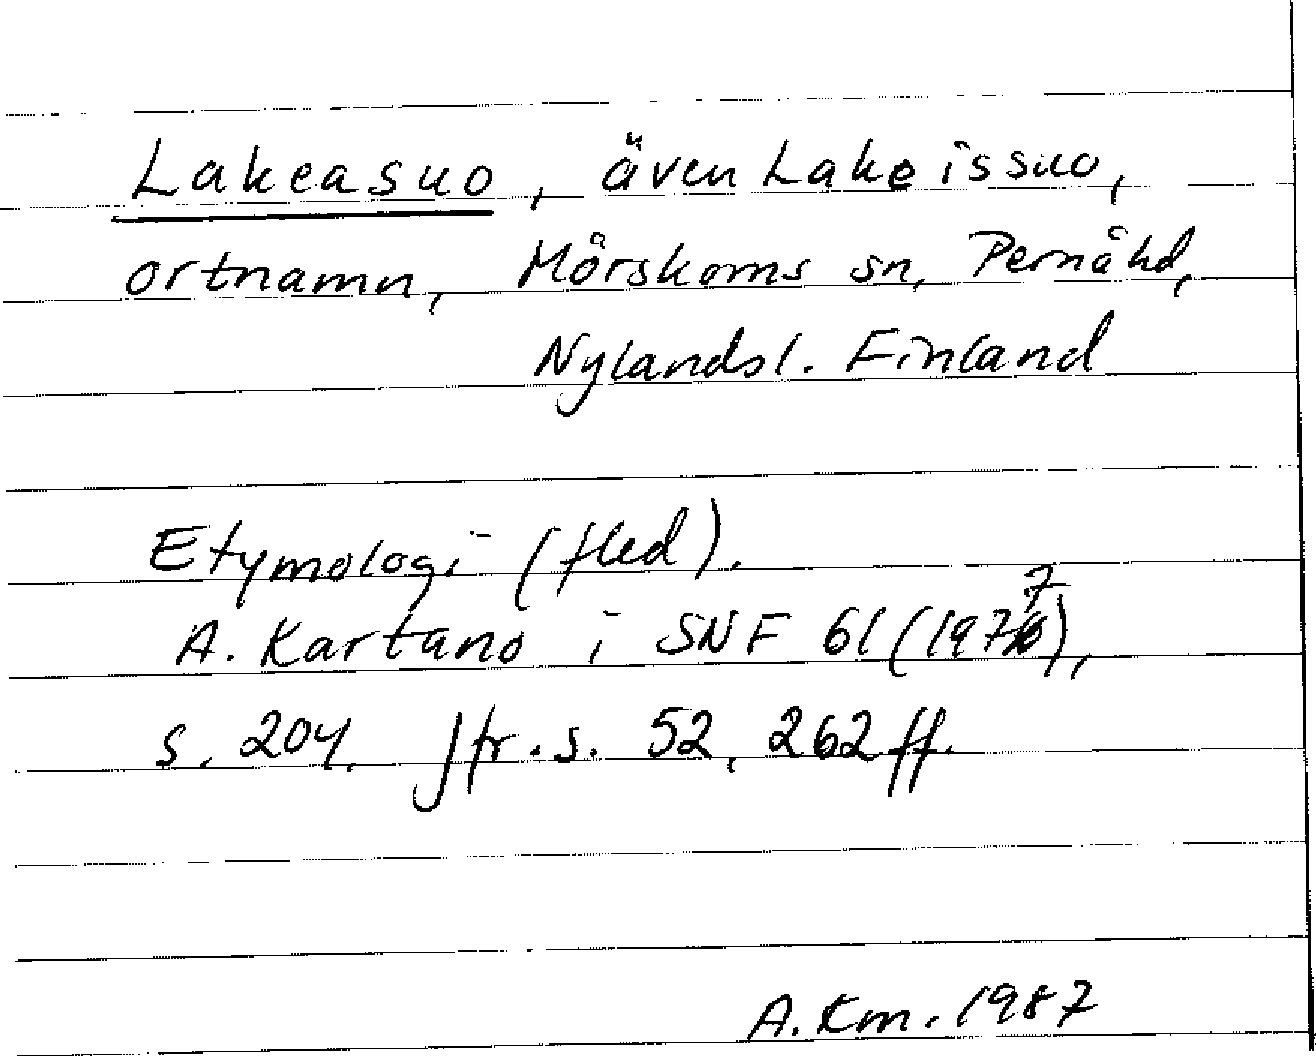 Lakeasuo, även Lakeissuo,
ortnamn, Mörskoms sn, Pernå hd,
Nylandsl. Finland
Etymologi (fled).
A. Kartano i SNF 61 (1977),
s. 204. Jfr. s. 52, 262 ff.
A. Km. 1987